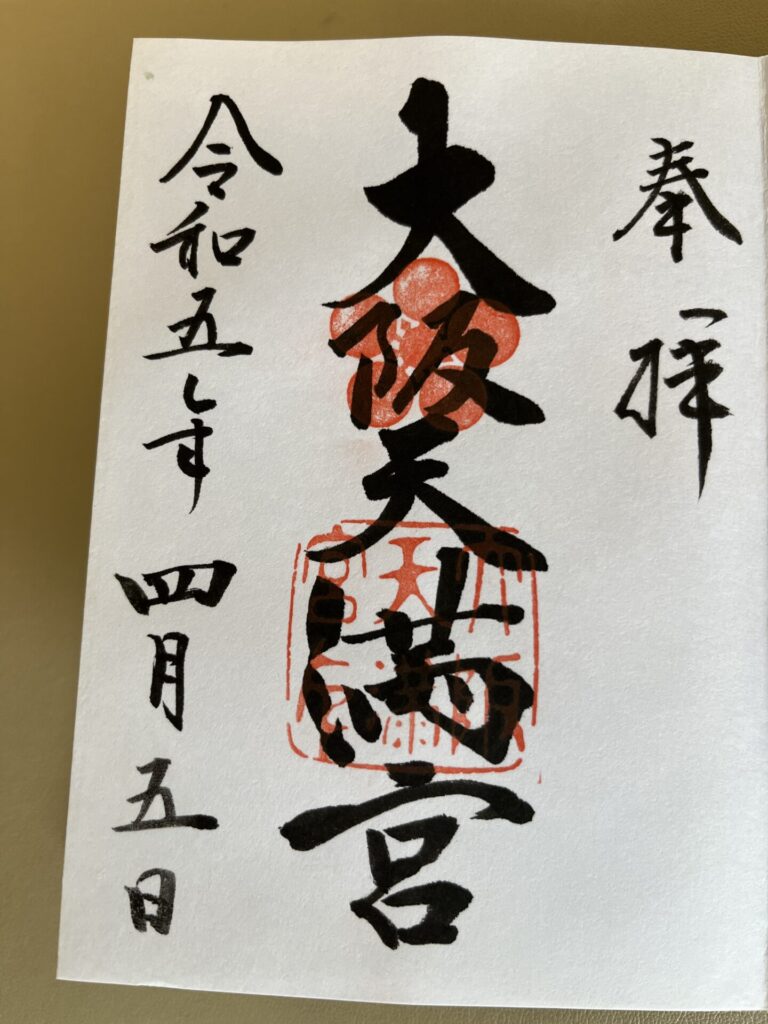 奉拝
大阪天満宮
令和五年四月五日